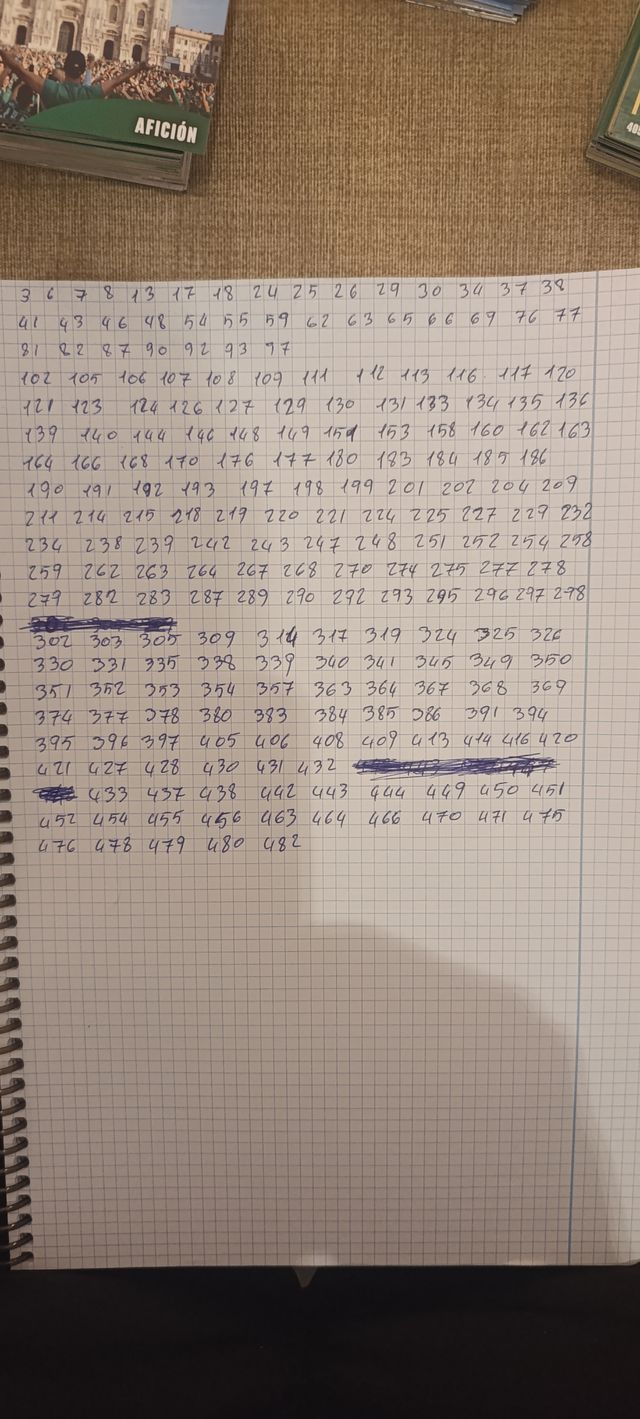 AFICIÓN
3 6 7 8 13 17 18 24 25 26 29 30 34 37 38
41 43 46 48 54 55 59 62 63 65 66 69 76 77
81 82 87 90 92 93 97
102 105 106 107 108 109 111 112 113 116 117 120
121 123 124 126 127 129 130 131 133 134 135 136
139 140 144 146 148 149 151 153 158 160 162 163
164 166 168 170 176 177 180 183 184 185 186
190 191 192 193 197 198 199 201 202 204 209
211 214 215 218 219 220 221 224 225 227 229 232
234 238 239 242 243 247 248 251 252 254 258
259 262 263 264 267 268 270 274 275 277 278
279 282 283 287 289 290 292 293 295 296 297 298
302 303 305 309 314 317 319 324 325 326
330 331 335 338 339 340 341 345 349 350
351 352 353 354 357 363 364 367 368 369
374 377 378 380 383 384 385 386 391 394
395 396 397 405 406 408 409 413 414 416 420
421 427 428 430 431 432
433 437 438 442 443 444 449 450 451
452 454 455 456 463 464 466 470 471 475
476 478 479 480 482